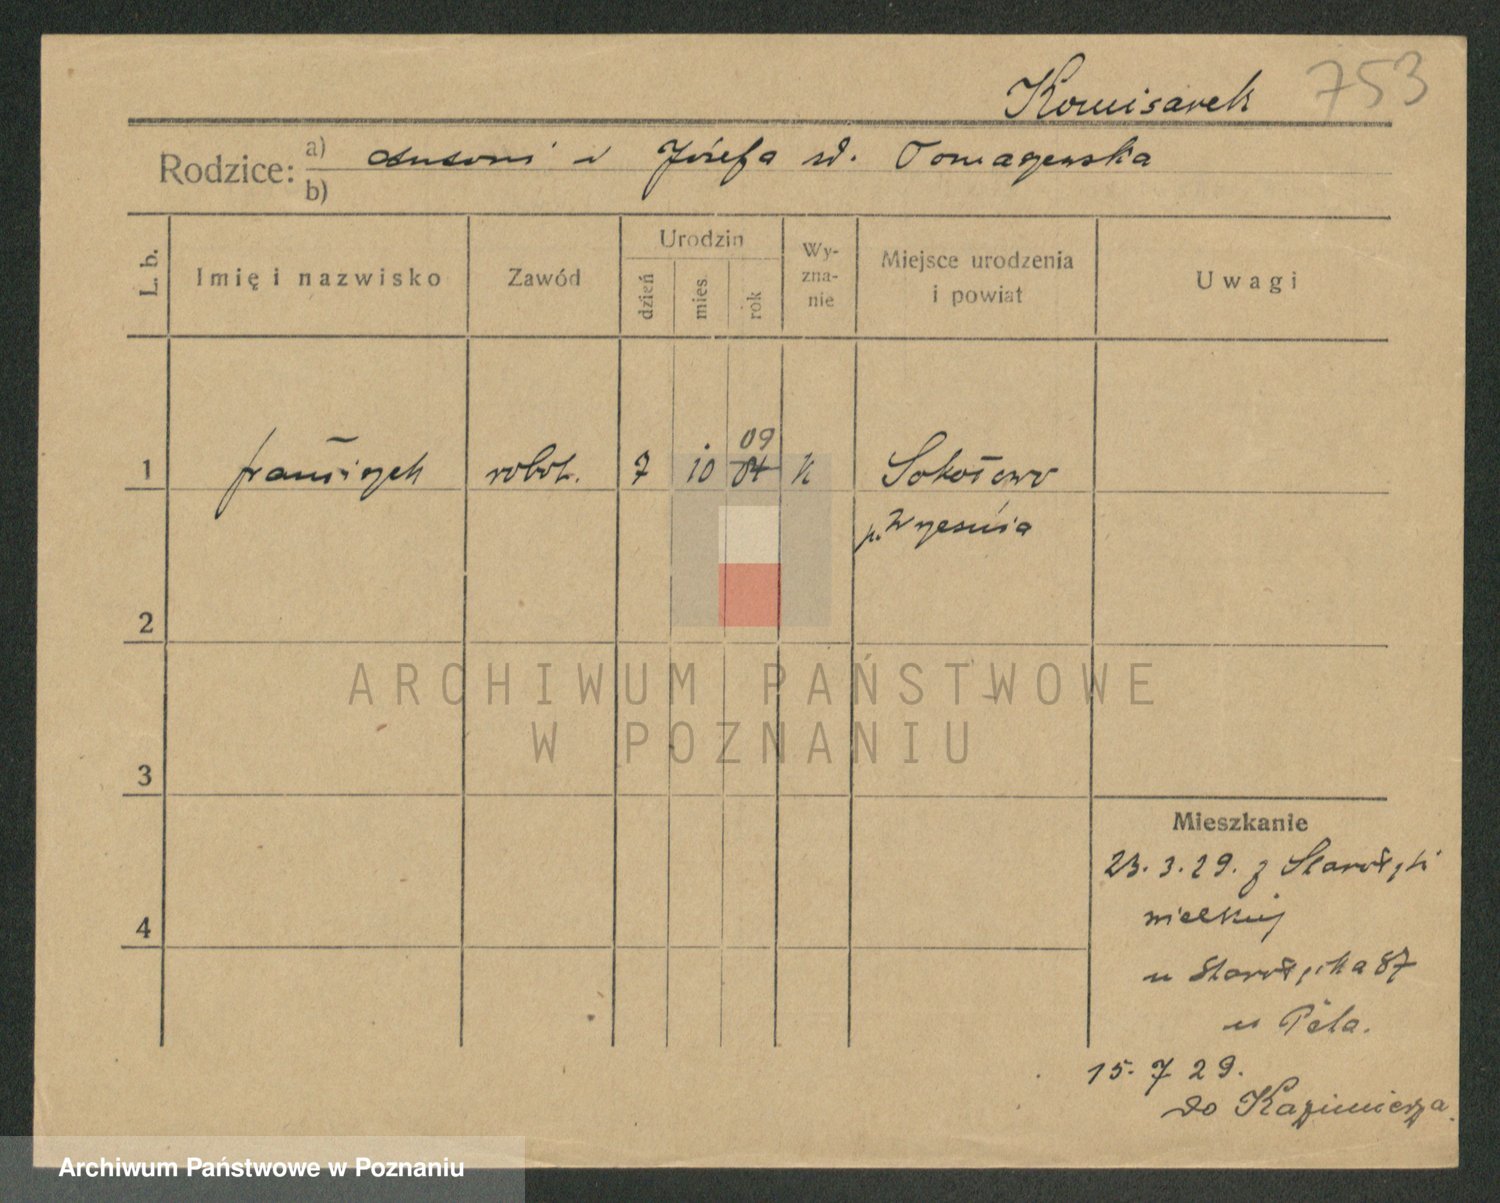 Komisarek 753
Rodzice: a) Antoni i Józefa zd. Tomaszewska
b)
L. b. Imię i nazwisko Zawód Urodzin dzień mies. rok Wy-zna-nie Miejsce urodzenia i powiat Uwagi
09
1 Franciszek robot. 7 10 04 k Sokołowo
p. Września
2
ARCHIWUM PAŃSTWOWE
W POZNANIU
3
Mieszkanie
23. 3. 29. z Starołęki
wielkiej
4
Starołęcka 87
u
15. 7 29.
do Kazimierza
Archiwum Państwowe w Poznaniu